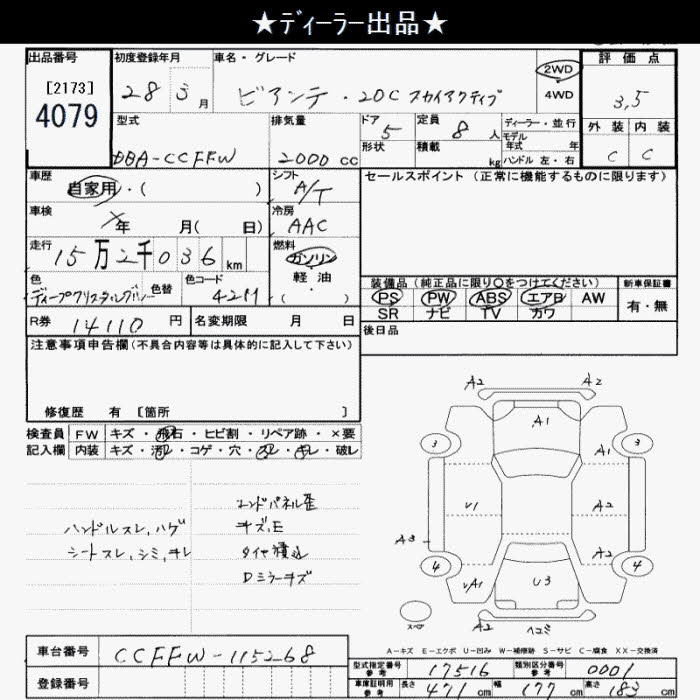 ★ディーラー出品★
出品番号
[2173]
4079
初度登録年月
28 3 月
車名・グレード
ビアンテ・20C スカイアクティブ
2WD
4WD
評価点
3,5
外装 内装
C C
型式
DBA-CCFFW
排気量
2000 cc
ドア
5
形状
定員
8 人
積載
kg
ディーラー・並行
モデル
年式 年
ハンドル 左・右
車歴
自家用・( )
シフト
A/T
セールスポイント (正常に機能するものに限ります)
車検
年 月( 日)
冷房
AAC
走行
15万2千036 km
燃料
ガソリン
軽・油
( )
色
ディープクリスタルブルー
色替
色コード
42M
装備品 (純正品に限り○をつけてください)
PS PW ABS エアB AW
SR ナビ TV カワ
新車保証書
有・無
R券 14110 円
名変期限 月 日
後日品
注意事項申告欄 (不具合内容等は具体的に記入して下さい)
修復歴 有 [箇所 ]
検査員
記入欄
FW キズ・飛石・ヒビ割・リペア跡・×要
内装 キズ・汚レ・コゲ・穴・スレ・キレ・破レ
ハンドルスレ,ハゲ
シートスレ,シミ,キレ
エンドパネル歪
キズ,E
タイヤ積込
Dミラーキズ
A2 A2
A1
3 3
A1
V1 A2
A3
A2
4 4
VA1 U3
A2 ヘコミ
スペア
A-キズ E-エクボ U-凹み W-補修跡 S-サビ C-腐食 XX-交換済
車台番号
CCFFW-115268
登録番号
型式指定番号
参考
17516
類別区分番号
参考
0001
車庫証明用
参考
長さ 471 cm
幅 177 cm
高さ 183 cm